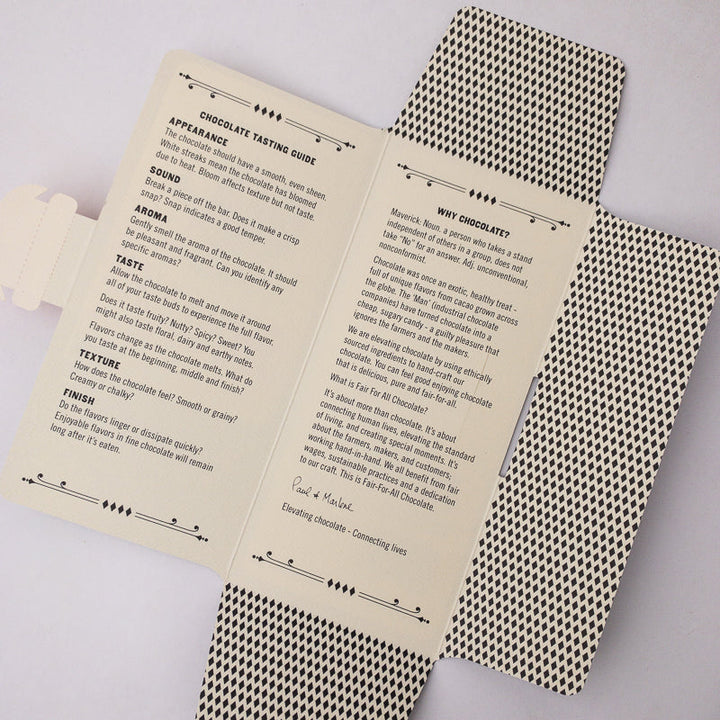 CHOCOLATE TASTING GUIDE
APPEARANCE
The chocolate should have a smooth, even sheen.
White streaks mean the chocolate has bloomed
due to heat. Bloom affects texture but not taste.
SOUND
Break a piece off the bar. Does it make a crisp
snap? Snap indicates a good temper.
AROMA
Gently smell the aroma of the chocolate. It should
be pleasant and fragrant. Can you identify any
specific aromas?
TASTE
Allow the chocolate to melt and move it around
all of your taste buds to experience the full flavor.
Does it taste fruity? Nutty? Spicy? Sweet? You
might also taste floral, dairy and earthy notes.
Flavors change as the chocolate melts. What do
you taste at the beginning, middle and finish?
TEXTURE
How does the chocolate feel? Smooth or grainy?
Creamy or chalky?
FINISH
Do the flavors linger or dissipate quickly?
Enjoyable flavors in fine chocolate will remain
long after it's eaten.
WHY CHOCOLATE?
Maverick. Noun. a person who takes a stand
independent of others in a group, does not
take "No" for an answer. Adj. unconventional,
nonconformist.
Chocolate was once an exotic, healthy treat -
full of unique flavors from cacao grown across
the globe. The 'Man' (industrial chocolate
companies) have turned chocolate into a
cheap, sugary candy - a guilty pleasure that
ignores the farmers and the makers.
We are elevating chocolate by using ethically
sourced ingredients to hand-craft our
chocolate. You can feel good enjoying chocolate
that is delicious, pure and fair-for-all.
What is Fair For All Chocolate?
It's about more than chocolate. It's about
connecting human lives, elevating the standard
of living, and creating special moments. It's
about the farmers, makers, and customers;
working hand-in-hand. We all benefit from fair
wages, sustainable practices and a dedication
to our craft. This is Fair-For-All Chocolate.
Paul & Marlene
Elevating chocolate - Connecting lives